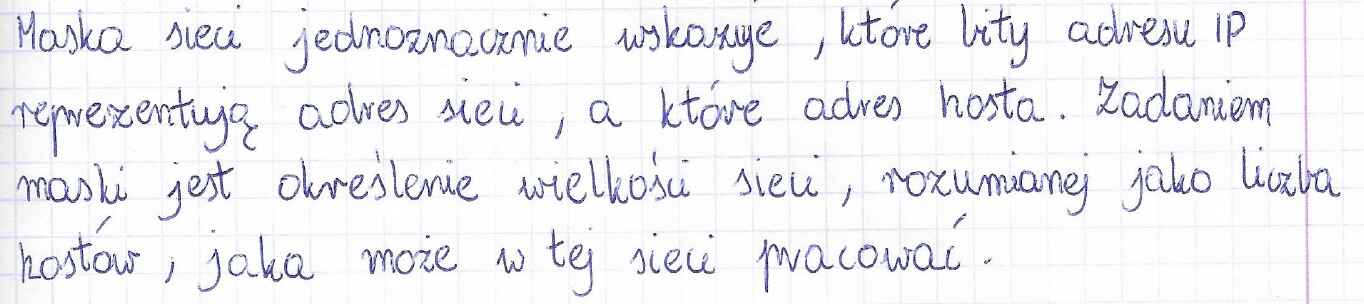 Maska sieci jednoznacznie wskazuje, które bity adresu IP
reprezentują adres sieci, a które adres hosta. Zadaniem
maski jest określenie wielkości sieci, rozumianej jako liczba
hostów, jaka może w tej sieci pracować.